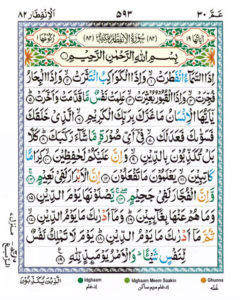 عَمَّ ٣٠ ٥٩٣ اَلْاِنْفِطَار ٨٢
اٰيَاتُهَا ١٩ (٨٢) سُوْرَةُ الْاِنْفِطَارِ مَكِّيَّةٌ (٨٢) رُكُوْعُهَا
بِسْمِ اللّٰهِ الرَّحْمٰنِ الرَّحِيْمِ
اِذَا السَّمَآءُ انْفَطَرَتْ ۙ وَاِذَا الْكَوَاكِبُ انْتَثَرَتْ ۙ وَاِذَا الْبِحَارُ
فُجِّرَتْ ۙ وَاِذَا الْقُبُوْرُ بُعْثِرَتْ ۙ عَلِمَتْ نَفْسٌ مَّا قَدَّمَتْ وَاَخَّرَتْ ؕ
يٰۤاَيُّهَا الْاِنْسَانُ مَا غَرَّكَ بِرَبِّكَ الْكَرِيْمِ ۙ الَّذِيْ خَلَقَكَ
فَسَوّٰىكَ فَعَدَلَكَ ۙ فِيْۤ اَيِّ صُوْرَةٍ مَّا شَآءَ رَكَّبَكَ ؕ كَلَّا
بَلْ تُكَذِّبُوْنَ بِالدِّيْنِ ۙ وَاِنَّ عَلَيْكُمْ لَحٰفِظِيْنَ ۙ كِرَامًا
كَاتِبِيْنَ ۙ يَعْلَمُوْنَ مَا تَفْعَلُوْنَ اِنَّ الْاَبْرَارَ لَفِيْ نَعِيْمٍ ۚ
وَاِنَّ الْفُجَّارَ لَفِيْ جَحِيْمٍ ۚۖ يَّصْلَوْنَهَا يَوْمَ الدِّيْنِ
وَمَا هُمْ عَنْهَا بِغَآئِبِيْنَ ؕ وَمَاۤ اَدْرٰىكَ مَا يَوْمُ الدِّيْنِ ۙ
ثُمَّ مَاۤ اَدْرٰىكَ مَا يَوْمُ الدِّيْنِ ؕ يَوْمَ لَا تَمْلِكُ نَفْسٌ
لِّنَفْسٍ شَيْـًٔا ؕ وَالْاَمْرُ يَوْمَئِذٍ لِّلّٰهِ
Idghaam ادغام
Idghaam Meem Saakin ادغام میم ساکن
Ghunna غنّہ